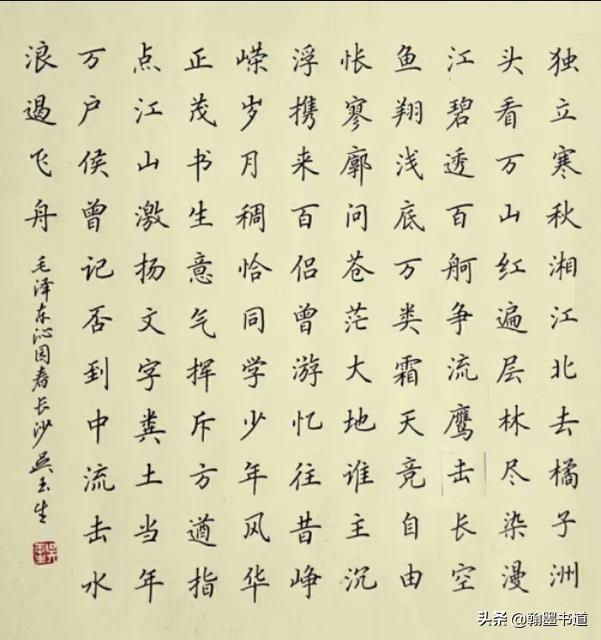 独立寒秋湘江北去橘子洲
头看万山红遍层林尽染漫
江碧透百舸争流鹰击长空
鱼翔浅底万类霜天竞自由
怅寥廓问苍茫大地谁主沉
浮携来百侣曾游忆往昔峥
嵘岁月稠恰同学少年风华
正茂书生意气挥斥方遒指
点江山激扬文字粪土当年
万户侯曾记否到中流击水
浪遏飞舟
毛泽东沁园春长沙 吴玉生
头条 @翰墨书道